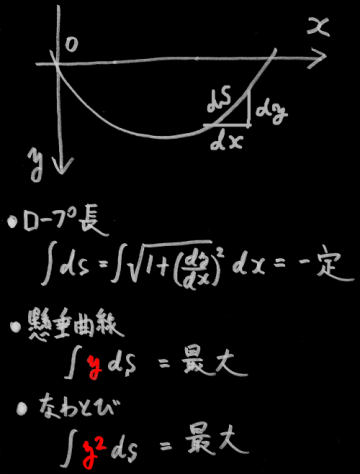 O x
dS
dy
dx
y
•ロープ長
∫ds=∫√1+(dy/dx)² dx = 一定
•懸垂曲線
∫y ds = 最大
•なわとび
∫y² ds = 最大